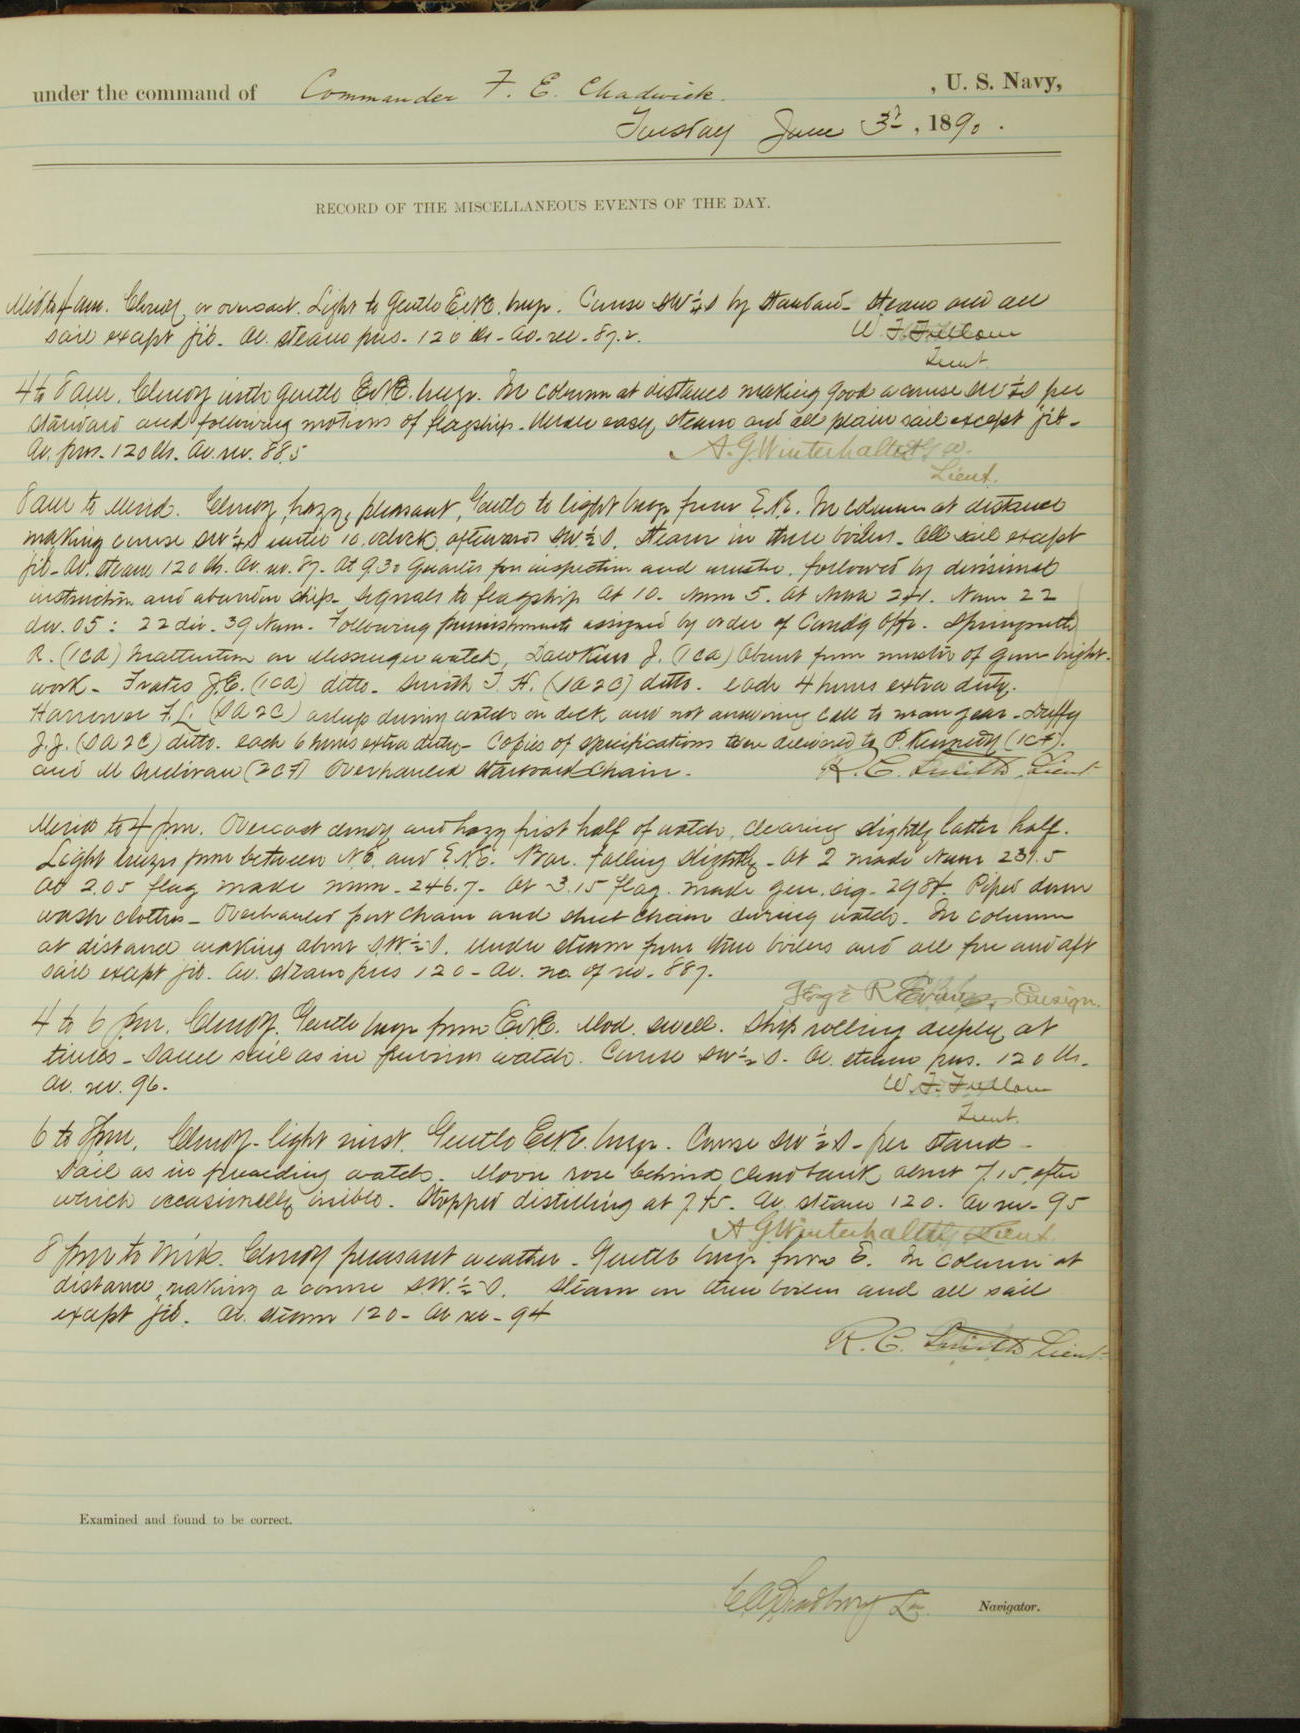 under the command of Commander F. E. Chadwick. , U. S. Navy,
Tuesday June 3d, 1890.
RECORD OF THE MISCELLANEOUS EVENTS OF THE DAY.
Mid to 4 am. Cloudy or overcast. Light to gentle E'NE. breeze. Course SW¼S by standard. Steam and all
sail except jib. Av. steam pres. 120 lbs. Av. rev. 87.2.
W. F. Fullam
Lieut.
4 to 8 am. Cloudy with gentle ENE. breeze. In column at distance making good a course SW¼S per
standard and following motions of flagship. Under easy steam and all plain sail except jib.
Av. pres. 120 lbs. Av. rev. 88.5
A. G. Winterhalter
Lieut.
8 am to Merid. Cloudy, hazy, pleasant, Gentle to light breeze from E.N.E. In column at distance
making course SW¼S until 10 o'clock, afterwards SW.½S. Steam in three boilers. All sail except
jib. Av. steam 120 lbs. Av. rev. 87. At 9.30 Quarters for inspection and muster, followed by divisional
instruction and abandon ship. Signals to flagship At 10. Num 5. At Num 22
div. 05: 22 div. 39 Num. Following punishments assigned by order of Comd'g Offr.
R. (1CA) Inattention on Messenger watch, Dawkins J. (1CA) Absent from muster of gun bright-
work. Frates J.E. (1CA) ditto. Smith T. H. (SA2C) ditto. each 4 hours extra duty.
F.L. (SA2C) asleep during watch on deck and not answering call to man gear. Duffy
J.J. (SA2C) ditto. each 6 hours extra duty. Copies of specifications were delivered to P. Kennedy (1CF).
and M Sullivan (2CF) Overhauled starboard chain. R. C. Smith, Lieut
Merid to 4 pm. Overcast cloudy and hazy first half of watch, clearing slightly latter half.
Light breezes from between NE. and E.N.E. Bar. falling slightly. At 2 made Num 231.5
At 2.05 flag made num. 246.7. At 3.15 flag made gen. sig. Piped down
wash clothes. Overhauled port chain and sheet chain during watch. In column
at distance making about SW.½S. Under steam from three boilers and all fore and aft
sail except jib. Av. steam pres 120. Av. no. of rev. 88.7.
Geo. R. Evans, Ensign.
4 to 6 pm. Cloudy. Gentle breeze from ENE. Mod. swell. Ship rolling deeply at
times. Same sail as in previous watch. Course SW½S. Av. steam pres. 120 lbs.
Av. rev. 96.
W. F. Fullam
Lieut.
6 to 8 pm. Cloudy. light mist. Gentle ENE. breeze. Course SW½S. per stand.
Sail as in preceding watch. Moon rose behind cloud bank about 7.15, after
which occasionally visible. Stopped distilling at 7.45. Av. steam 120. Av rev. 95
A. G. Winterhalter, Lieut.
8 pm to Mid. Cloudy pleasant weather. Gentle breeze from E. In column at
distance, making a course SW.½S. Steam on three boilers and all sail
except jib. Av. steam 120. Av rev. 94
R. C. Smith Lieut
Examined and found to be correct.
Navigator.